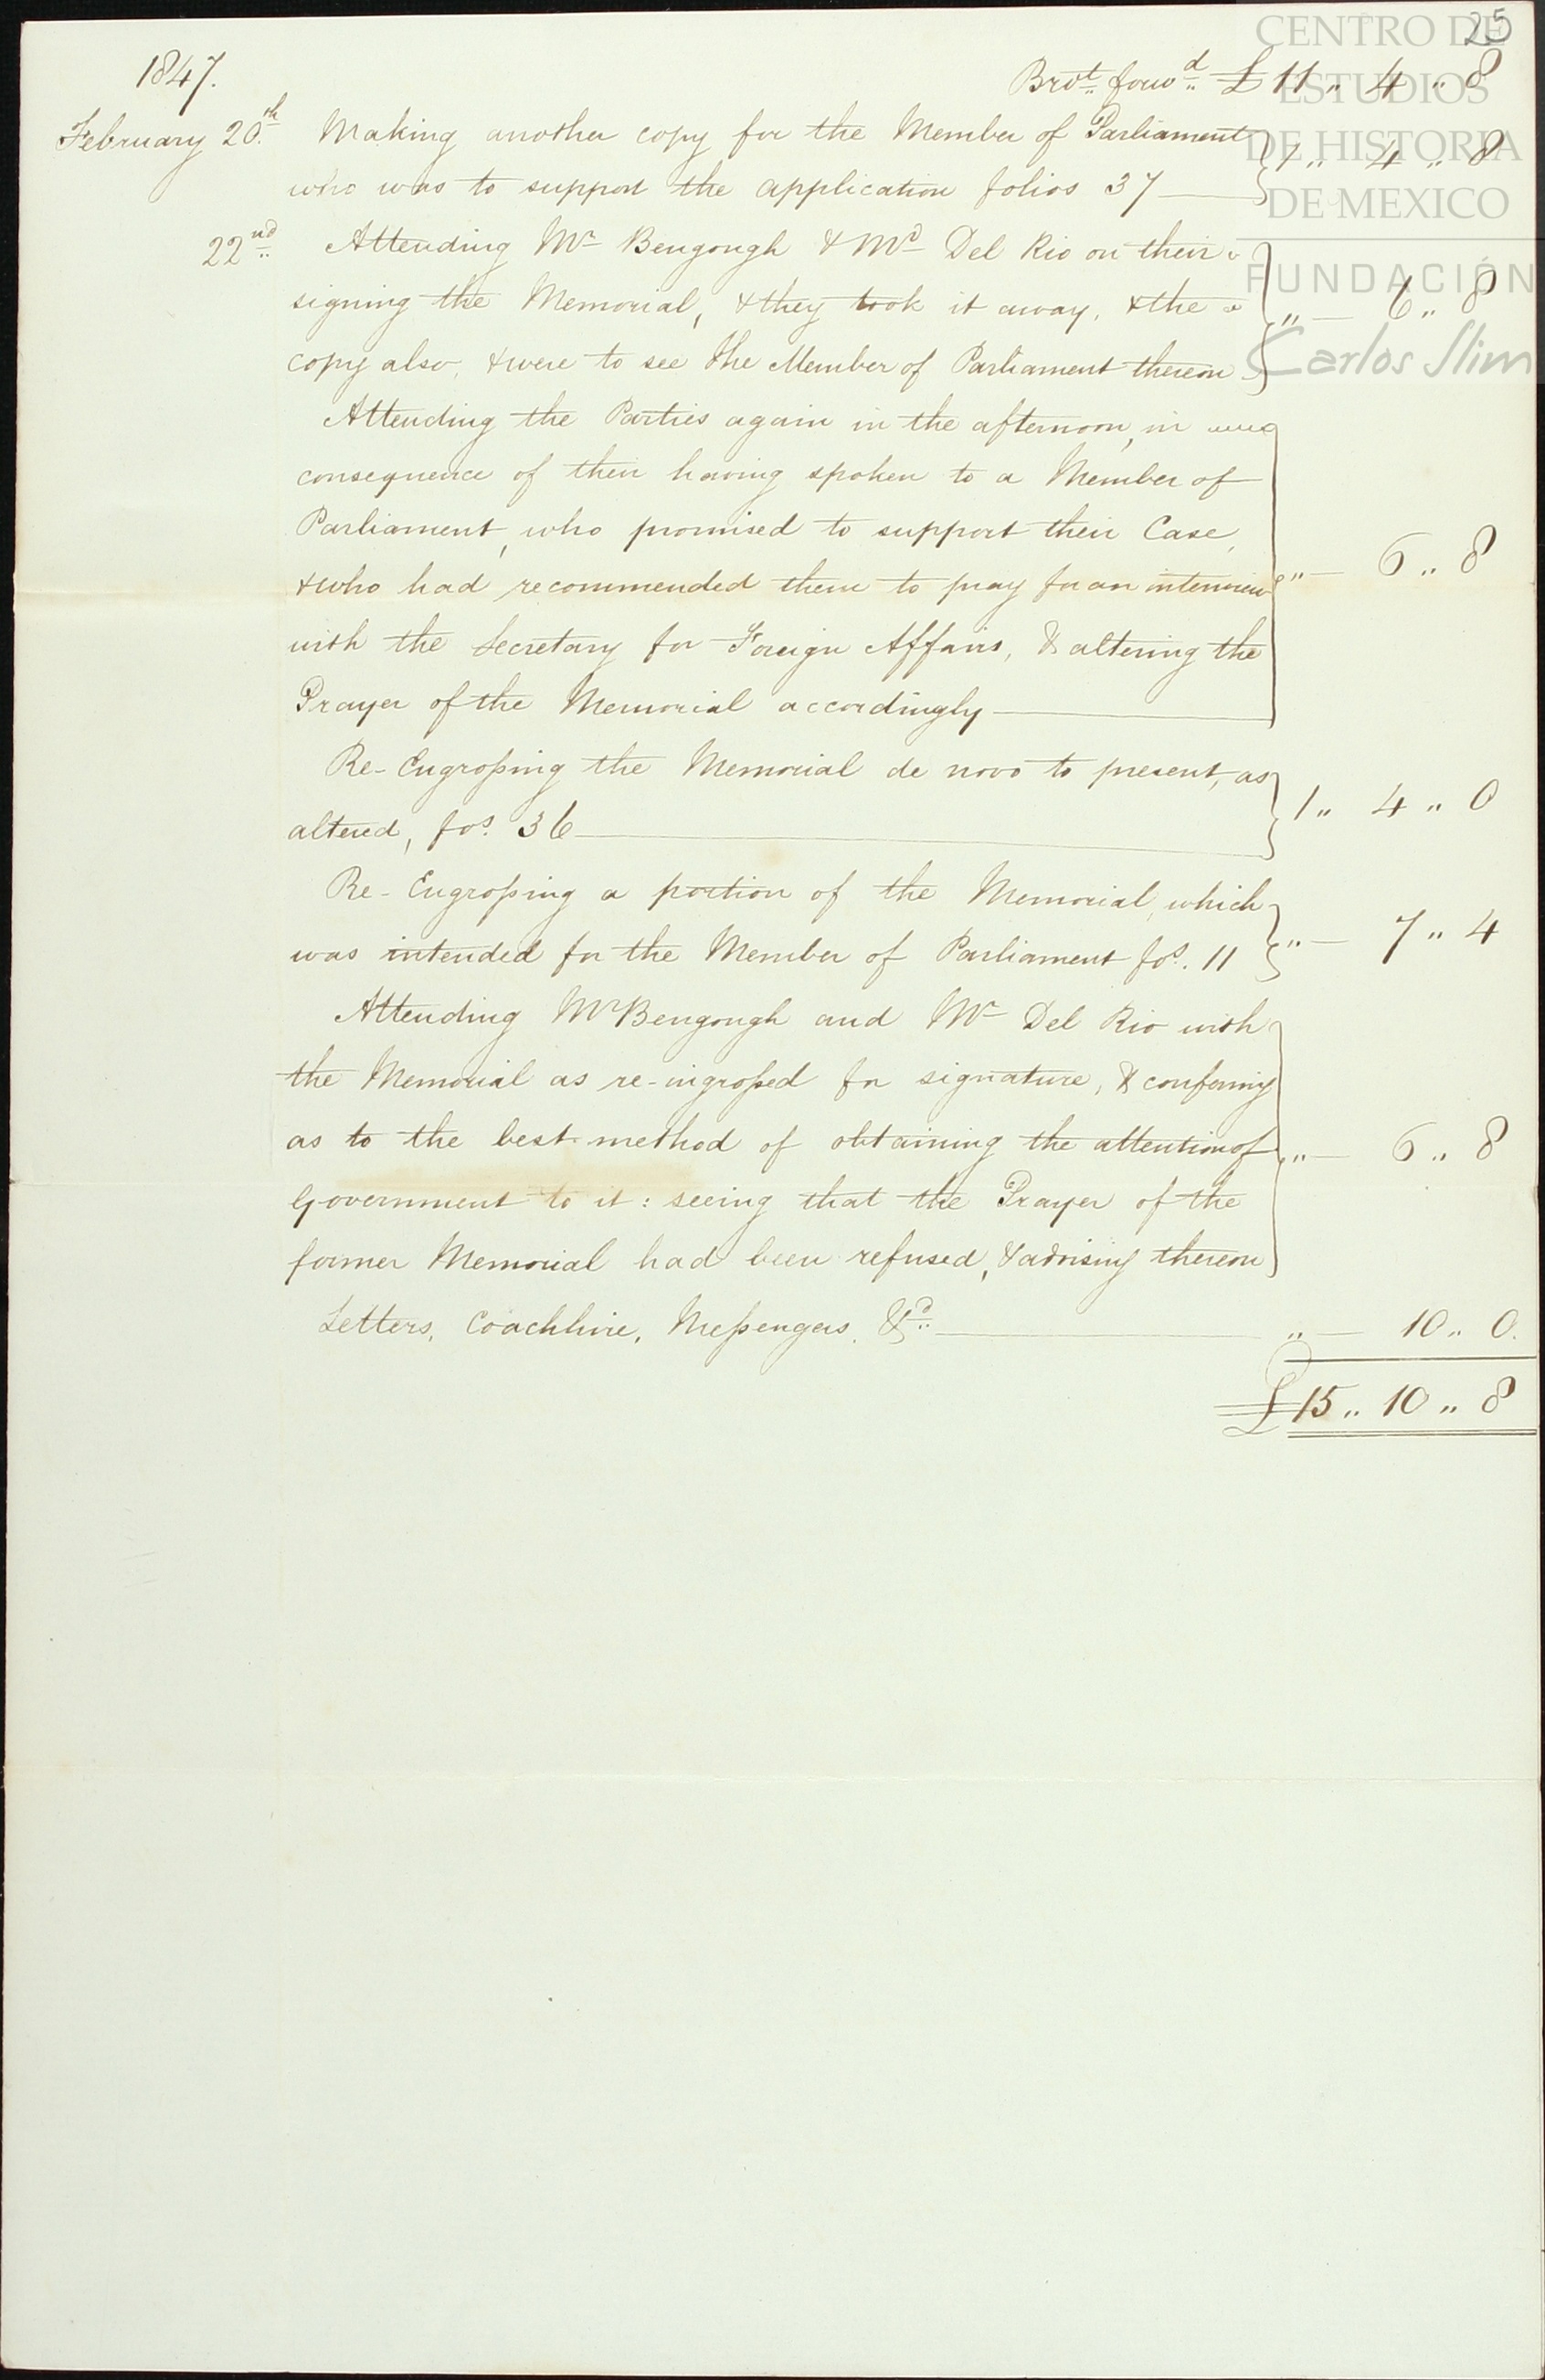 25
CENTRO DE
ESTUDIOS
DE HISTORIA
DE MEXICO
FUNDACIÓN
Carlos Slim
1847.
Brot. forwd. £ 11 „ 4 „ 8
February 20th. Making another copy for the Member of Parliament
who was to support the application folios 37 — 1 „ 4 „ 8
22nd. Attending Mr Bengough & Mr Del Rio on their
signing the Memorial, & they took it away, & the „ — 6 „ 8
copy also, & were to see the Member of Parliament thereon
Attending the Parties again in the afternoon, in
consequence of their having spoken to a Member of
Parliament, who promised to support their Case,
& who had recommended them to pray for an interview „ — 6 „ 8
with the Secretary for Foreign Affairs, & altering the
Prayer of the Memorial accordingly —
Re-Engrossing the Memorial de novo to present, as
altered, fos. 36 — 1 „ 4 „ 0
Re-Engrossing a portion of the Memorial, which
was intended for the Member of Parliament fos. 11 „ — 7 „ 4
Attending Mr Bengough and Mr Del Rio with
the Memorial as re-ingrossed for signature, & conferring
as to the best method of obtaining the attention of „ — 6 „ 8
Government to it: seeing that the Prayer of the
former Memorial had been refused, & advising thereon
Letters, Coachhire, Messengers, &c. — „ — 10 „ 0.
£ 15 „ 10 „ 8